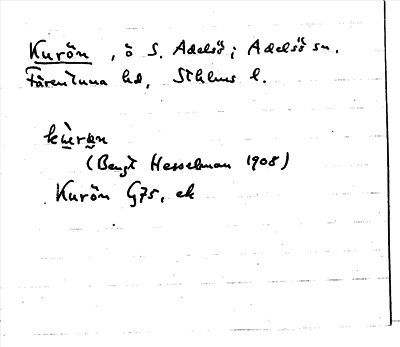 Kurön, ö S. Adelsö; Adelsö sn.
Färentuna hd, Sthlms l.
kùrɷn
(Bengt Hesselman 1908)
Kurön G75, ek